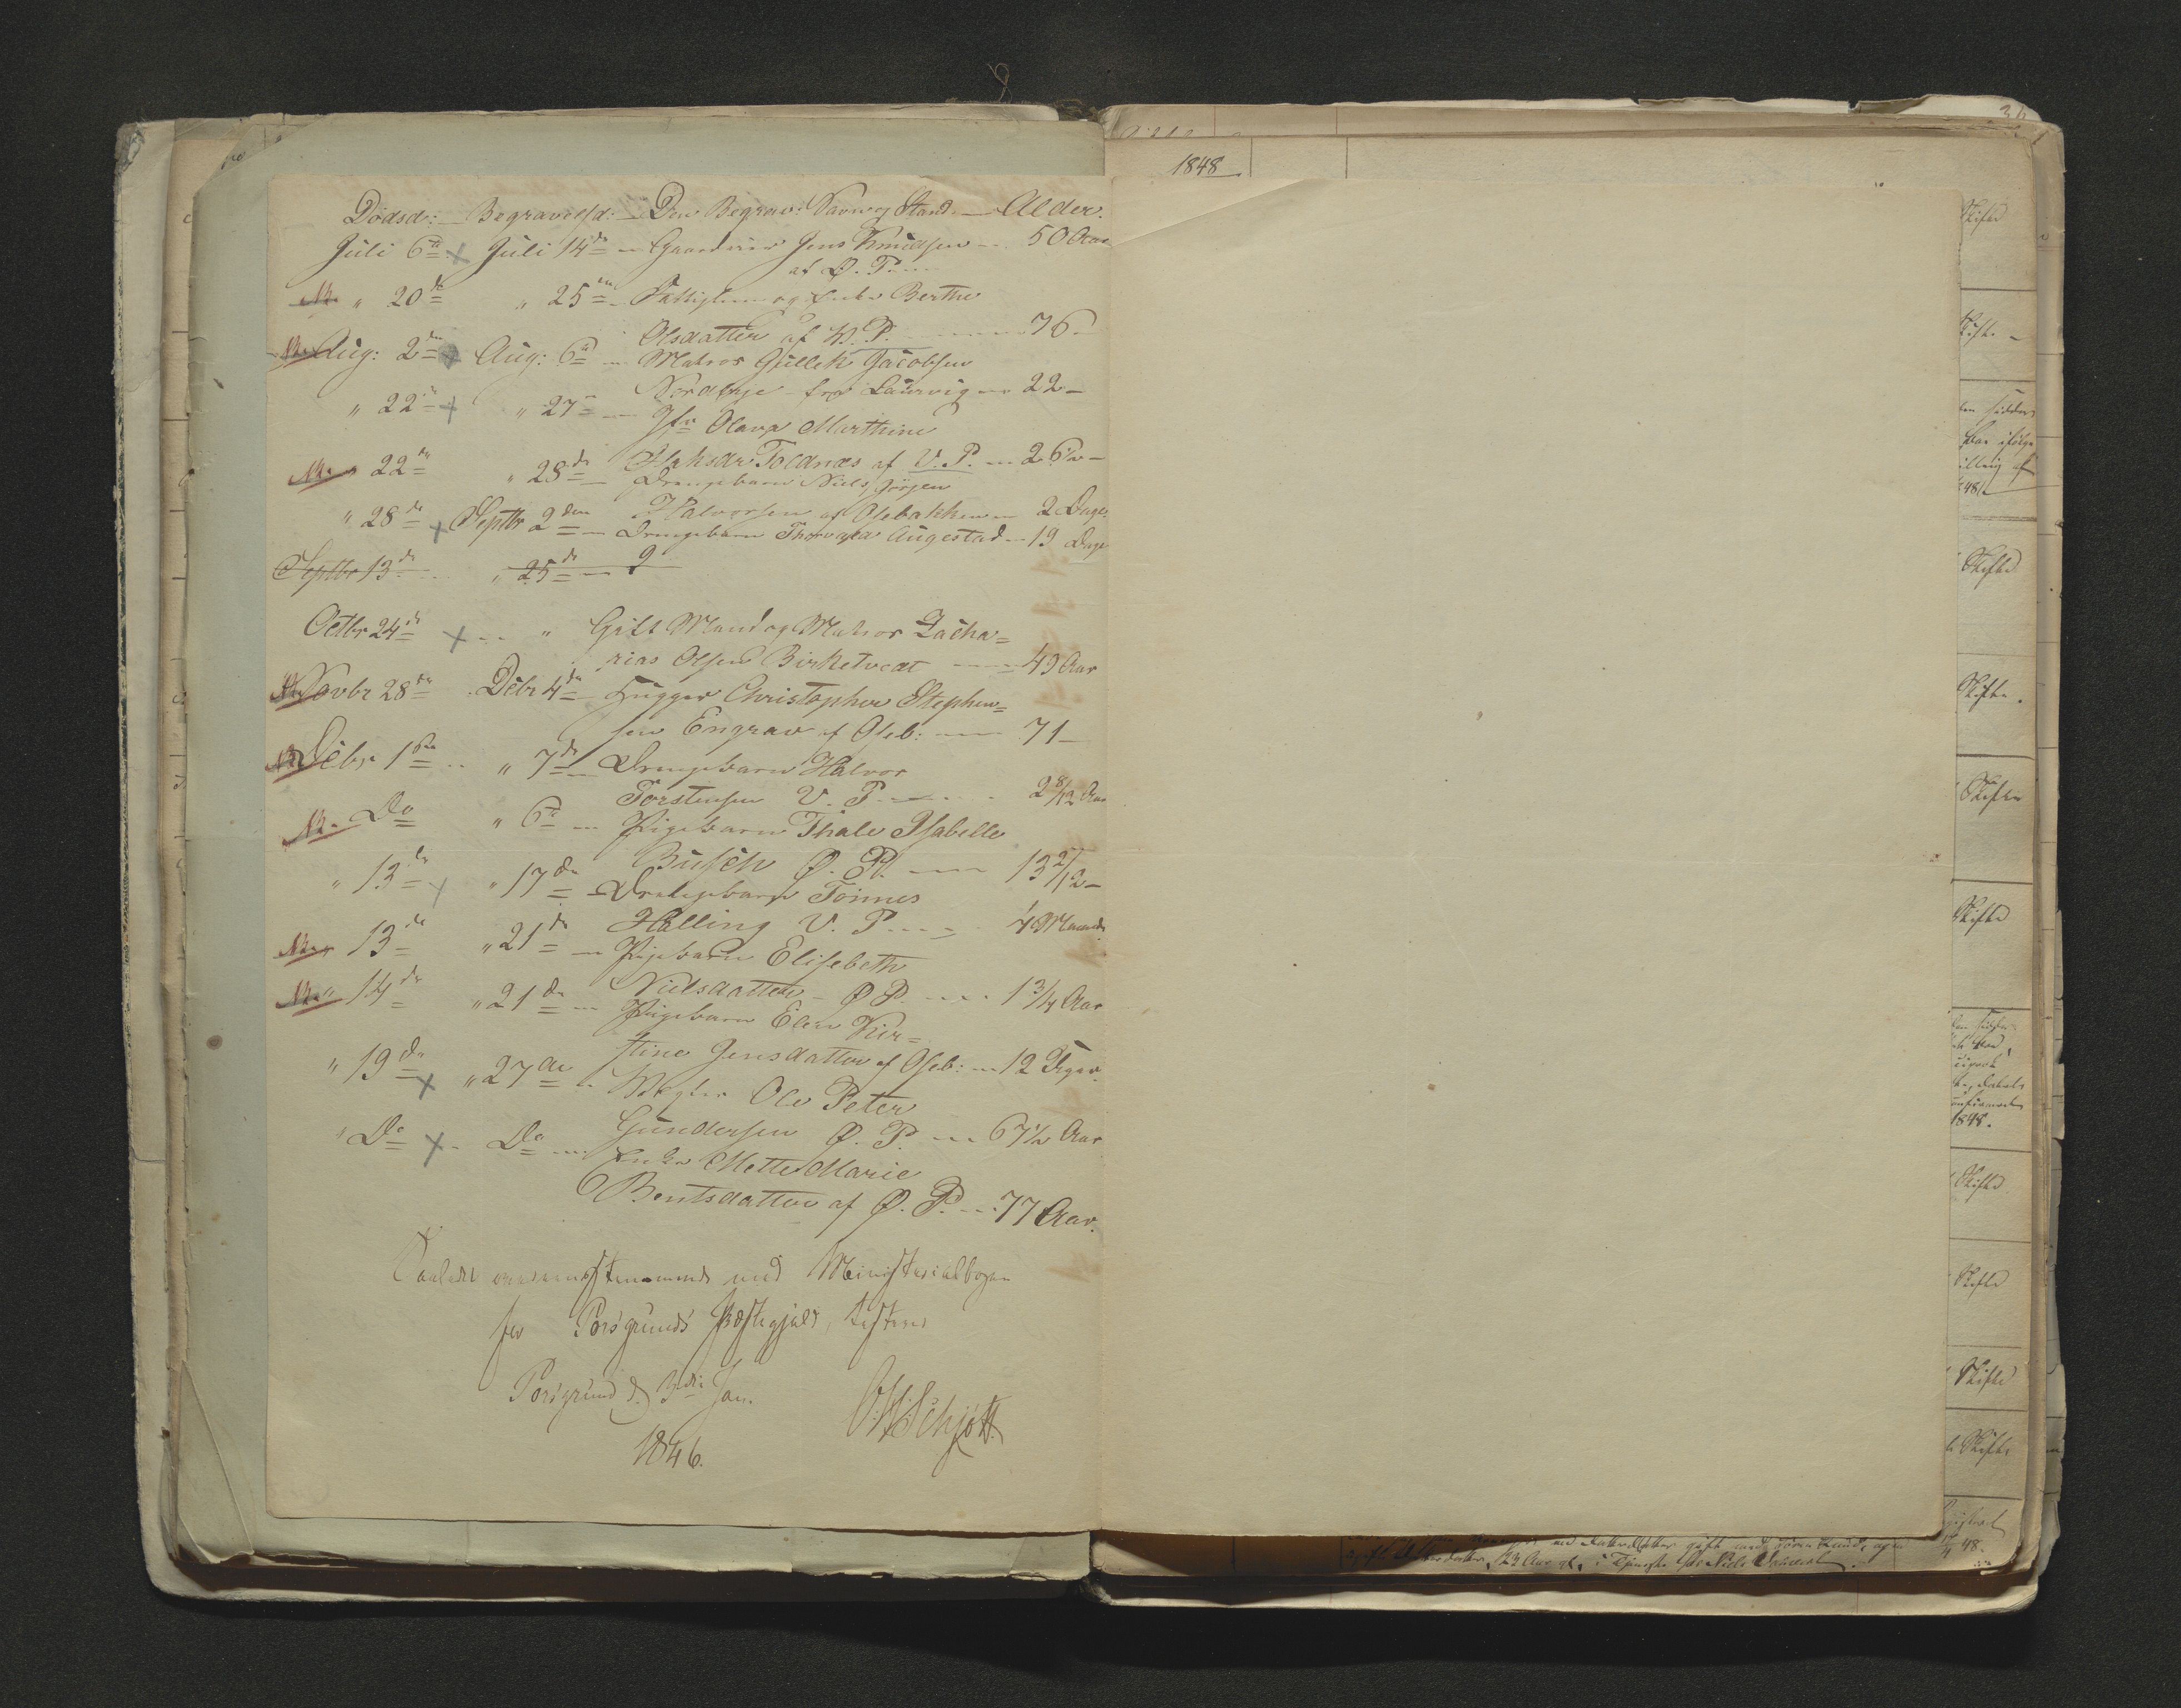 Dödsd: — Begravelsd: — Den Begrav: Navn og Stand — Alder.
Juli 6te × Juli 14de — Gaardmand Jens Knudsen — 50 Aar
af Ø. P.
N. " 20de " 25de — Fattiglem og Enke Berthe
Olsdatter af V. P. — 76 —
N. Aug: 2den × Aug: 6te — Matros Gullek Jacobsen
fra Laurvig — 22 —
" 22de × " 27de — Jfr Olava Marthine
Toldnæs af V. P. — 26½ —
N. " 22de " 28de — Drengebarn Niels Jörgen
Halvorsen af Osebakken — 2 Dage
" 28de × Septbr 2den — Drengebarn Thorvald Augestad — 19 Dage
Septbr 13de " 25de — 2
Octbr 24de × — " Gift Mand og Matros Zacha=
rias Olsen Birketvedt — 49 Aar
N. Novbr 28de Debr 4de — Hugger Christopher Stephen=
sen Engrav af Oseb: — 71 —
N. Debr 1ste — " 7de — Drengebarn Halvor
Torstensen V. P. — 2 8/12 Aar
N. Do " 6te — Pigebarn Thale Isabelle
Busch Ø. P. — 13 2/12 —
" 13de × " 17de — Drengebarn Tönnes
Halling V. P. — Maaned
N. " 13de " 21de — Pigebarn Elisebeth
Nielsdatter — Ø P. — 1 3/4 Aar
N. " 14de " 21de — Pigebarn Elen Kir=
stine Jensdatter af Oseb: — 12 Uger
" 19de × " 27de — Ole Peter
Gundersen Ø. P. — 67½ Aar
" Do × — Do — Enke Mette Marie
Bentsdatter af Ø. P. — 77 Aar.
overensstemmende med Ministerialbogen
for Porsgrunds Præstegjeld, testerer
Porsgrund d. 3die Jan.
1846. Schjött
1848
Skifte
Skifte
Skifte
Skifte.
Skifte
Skifte
1848.
Skifte
Skifte
Skifte
Skifte